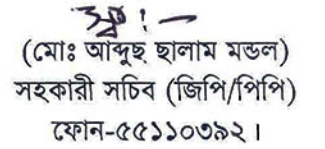 স্বাঃ/-
(মোঃ আব্দুছ ছালাম মন্ডল)
সহকারী সচিব (জিপি/পিপি)
ফোন-৫৫১১০৩৯২।